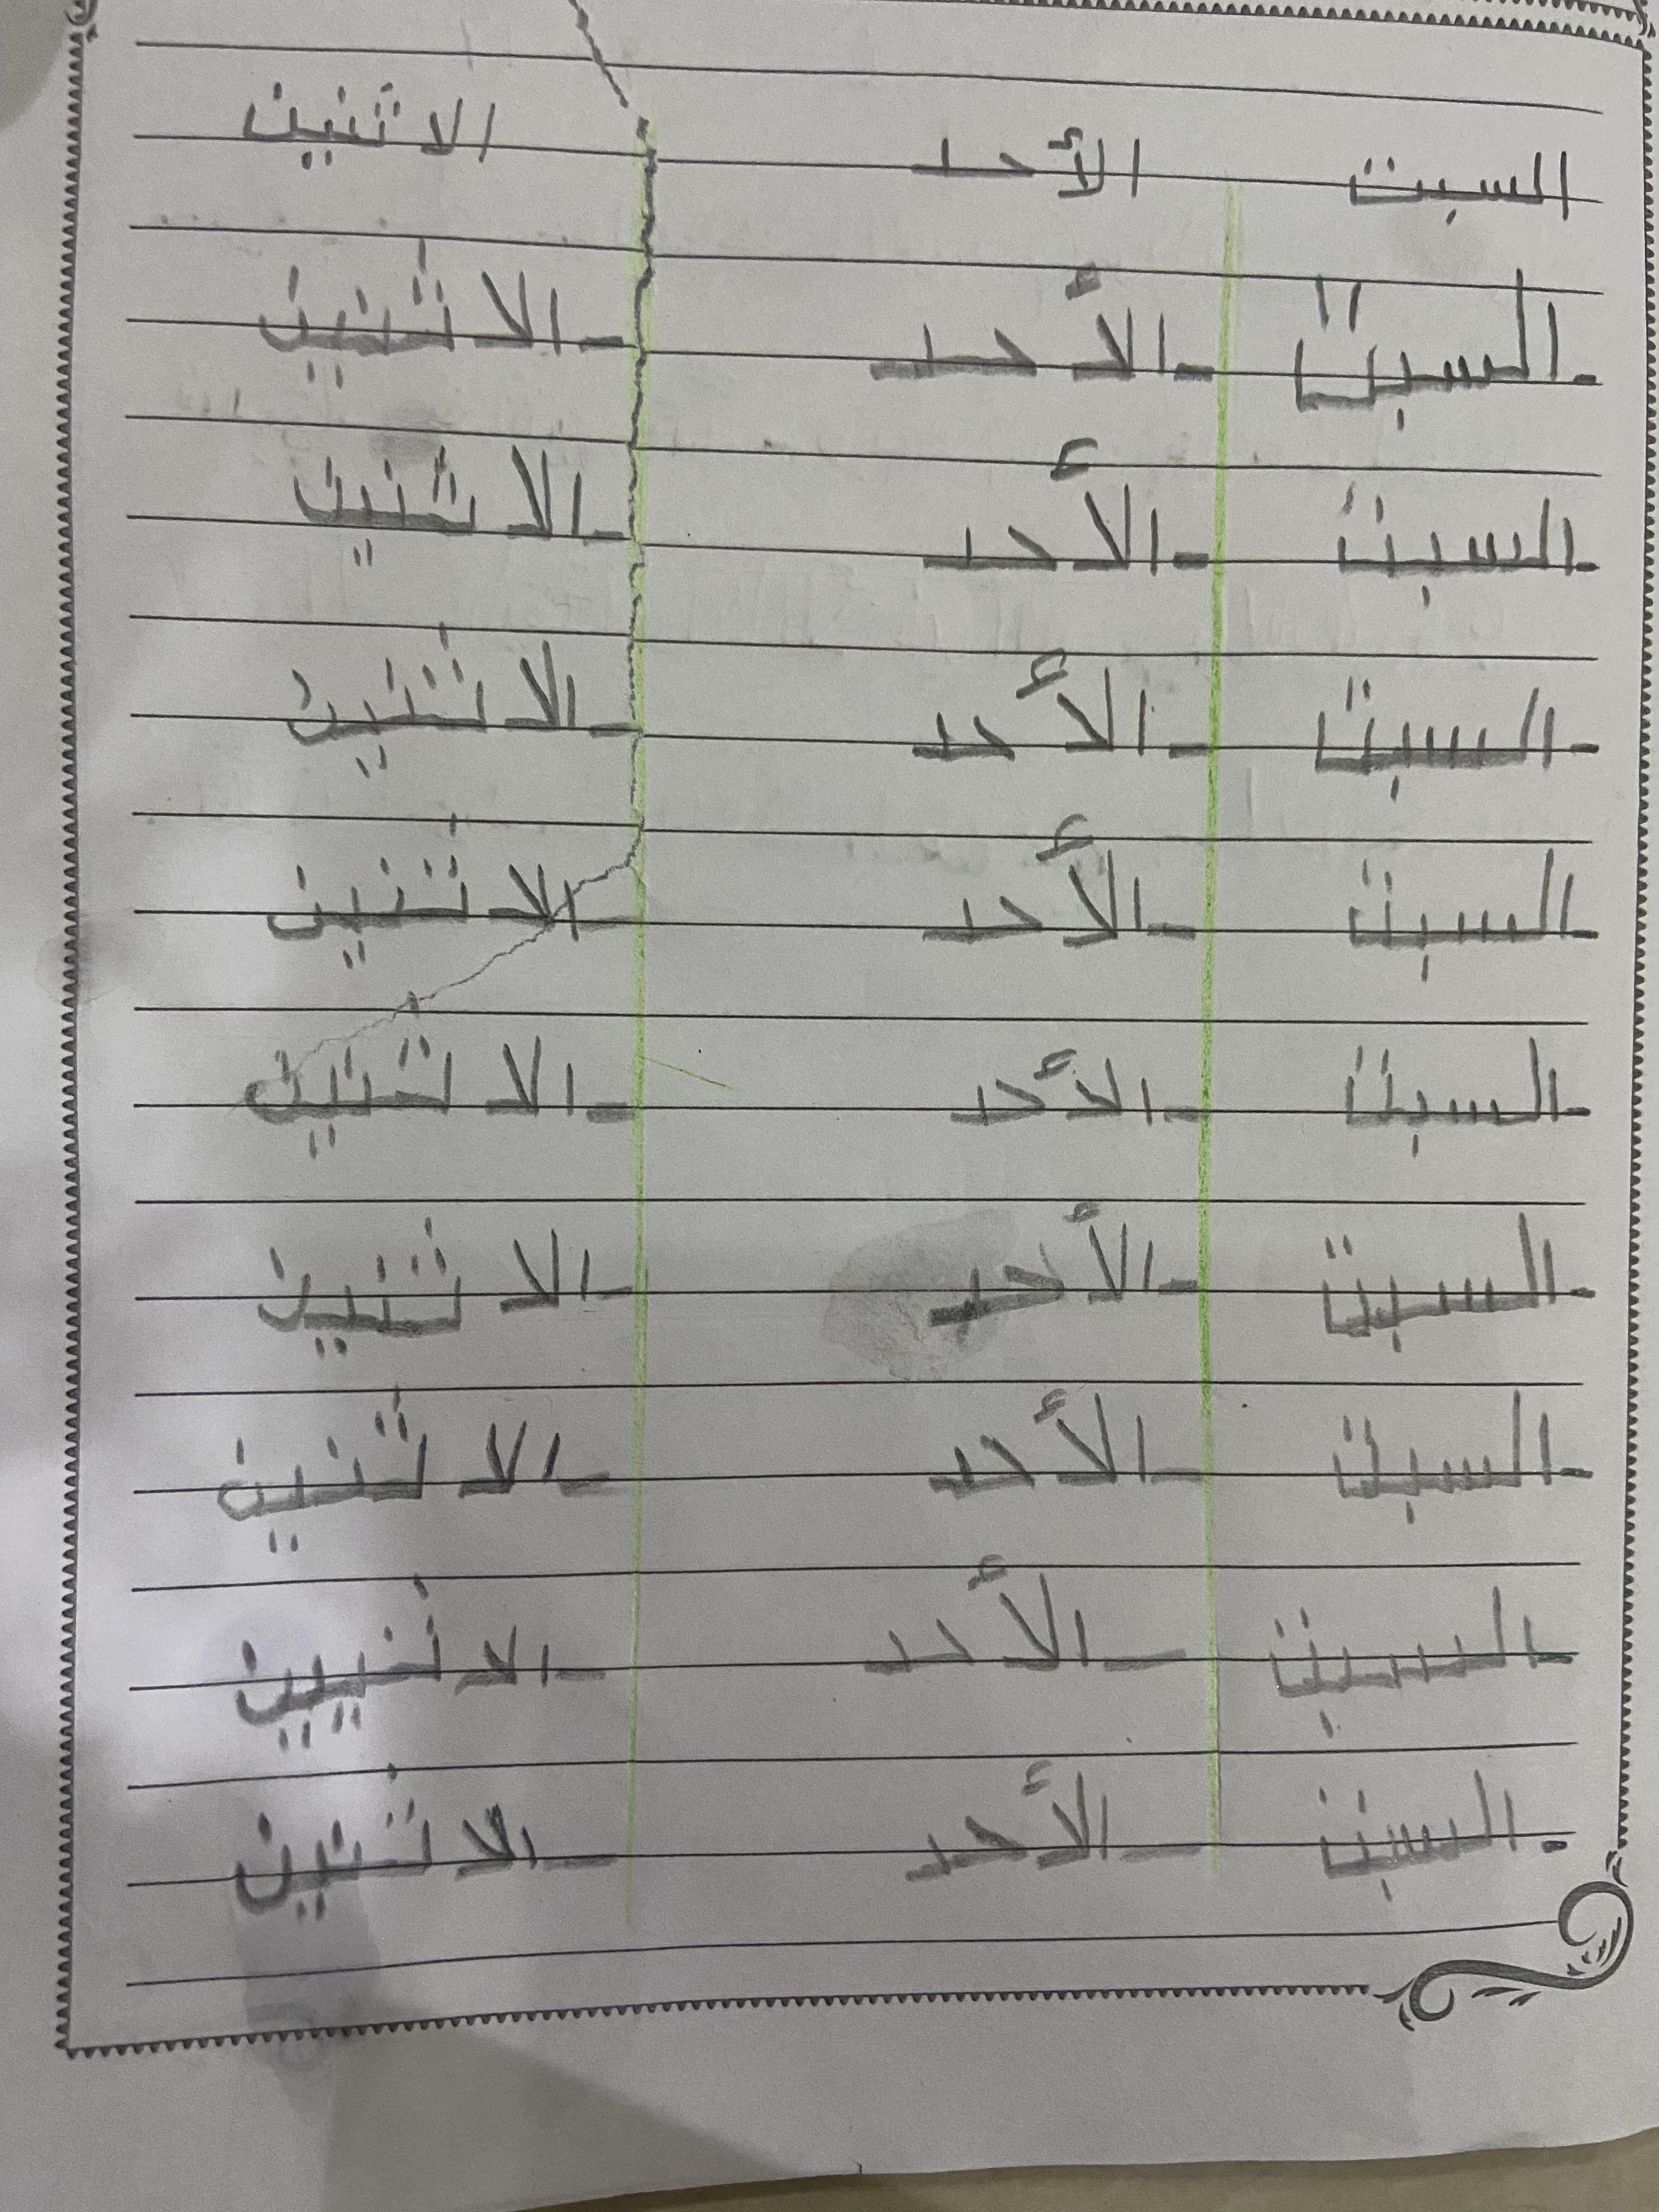 السبت الأحد الاثنين
- السبت - الأحد - الاثنين
- السبت - الأحد - الاثنين
- السبت - الأحد - الاثنين
- السبت - الأحد - الاثنين
- السبت - الأحد - الاثنين
- السبت - الأحد - الاثنين
- السبت - الأحد - الاثنين
- السبت - الأحد - الاثنيين
- السبت - الأحد - الاثنين